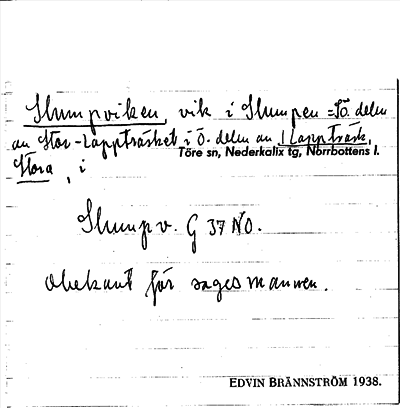 Slumpviken, vik i Slumpen = SÖ. delen
av Stor-Lappträsket i Ö. delen av Lappträsk,
Töre sn, Nederkalix tg, Norrbottens l.
Stora, i
Slumpv. G 37 NO.
Obekant för sagesmannen.
EDVIN BRÄNNSTRÖM 1938.